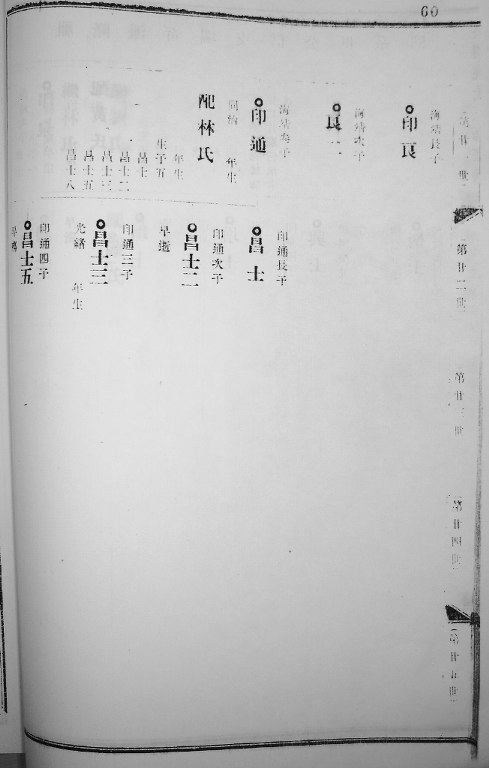 60
第廿一世
海靖長子
印良
海靖次子
良二
海靖叁子
印通
同治 年生
配林氏
年生
生子五
昌士
昌士二
昌士三
昌士五
昌士八
第廿二世
印通長子
昌士
印通次子
昌士二
早逝
印通三子
昌士三
光緒 年生
印通四子
昌士五
早逝
第廿三世
第廿四世
第廿五世